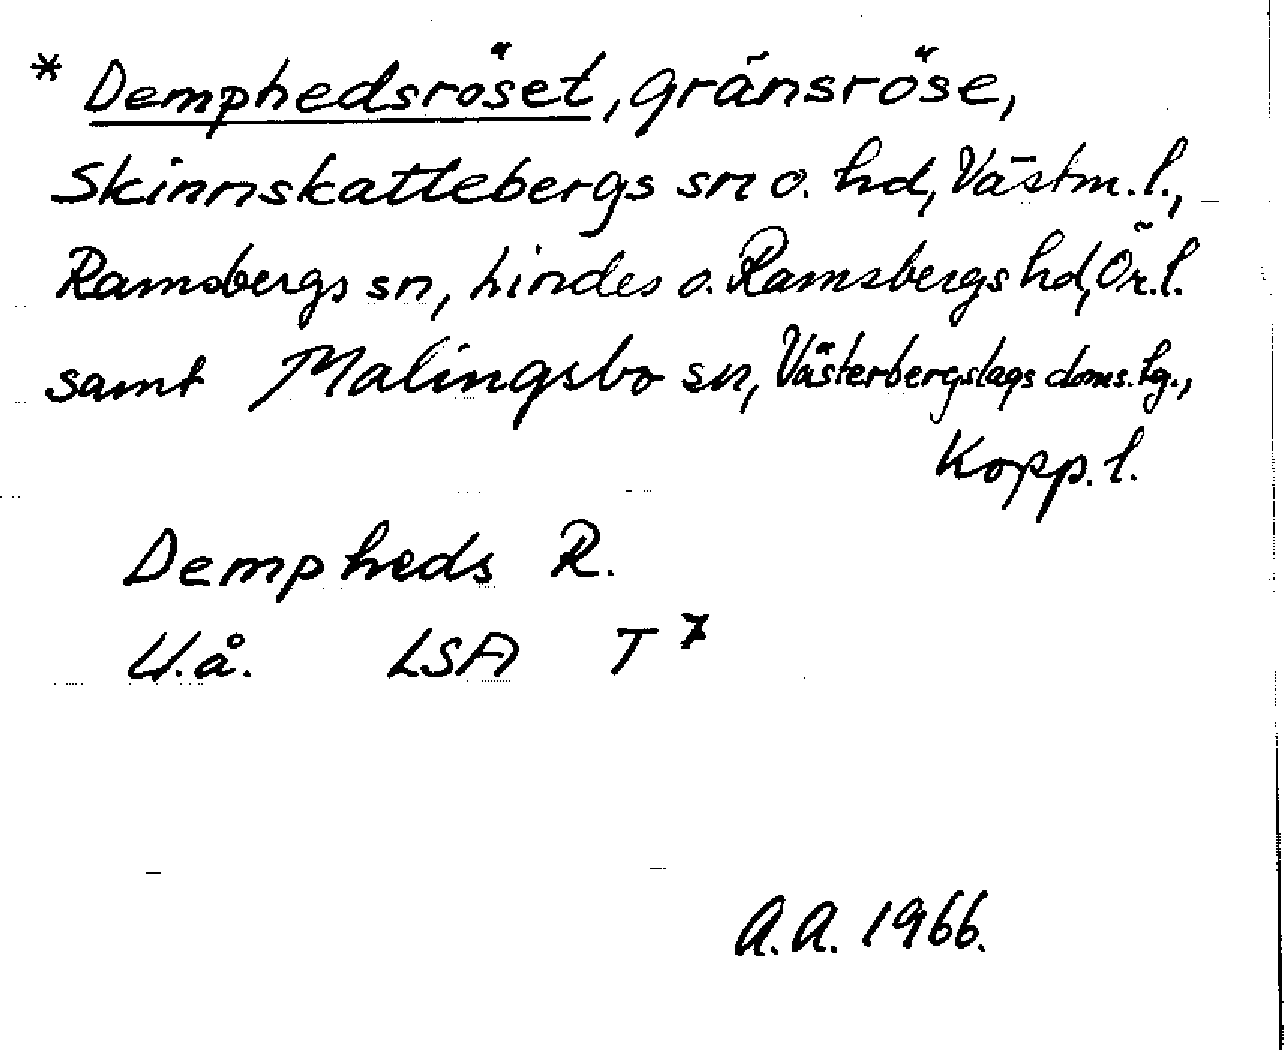 * Demphedsröset, gränsröse,
Skinnskattebergs sn o. hd, Västm. l.,
Ramsbergs sn, Lindes o. Ramsbergs hd, Ör. l.
samt Malingsbo sn, Västerbergslags doms. hg.,
Kopp. l.
Dempheds R.
U.å. LSA T 7
A.A. 1966.